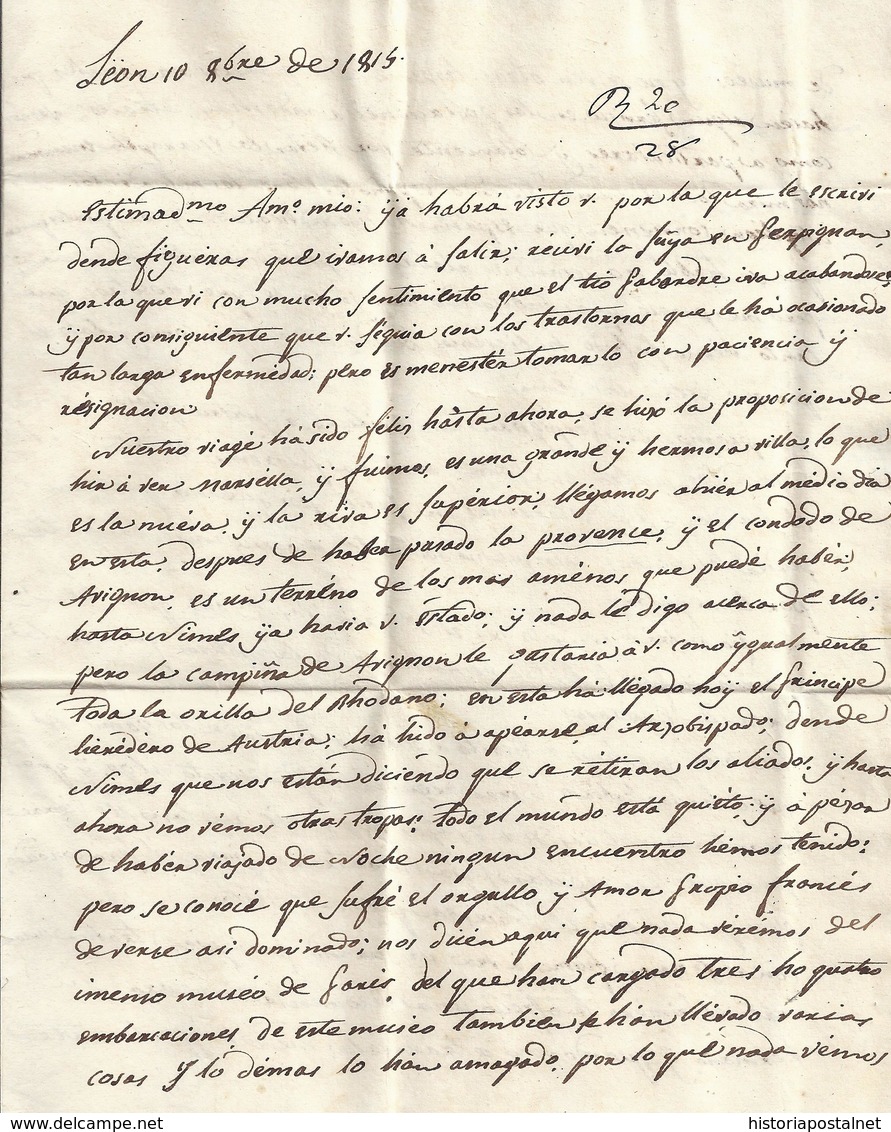 Léon 10 8bre de 1815.
R 20
28
Estimadmo Amo mio: ya habrá visto v. por la que le escrivi
dende figuéras que ivamos á salir; récivi la suya en Perpignan,
por la que vi con mucho sentimiento que el tio Pabordre iva acabandose,
y por consiguiente que v. seguia con los trastornos que le há ocasionado
tan larga enfermedad; pero es menestér tomarlo con paciencia y
résignacion
Nuestro viagé há sido féliz hasta ahora, se hizó la proposicion de
hir á ver Marsélla, y fuimos, es una grande y hermosa villa, lo que
es la nuéva, y la riva es supérior, llégamos ahiér al médio dia
en esta, despues de haber pasado la provence, y el condodo de
Avignon, es un terréno de los mas aménos que puedé habér,
hasta Nimes ya havia v. éstado; y nada le digo acerca de ello;
pero la campiña de Avignon le gustaria á v. como ygualmente
toda la orilla del Rhodano; en esta há llégado hoy el Principe
herédéro de Austria; há hido á apéarse al Arzobispado; dende
Nimes que nos están diciéndo que se rétiran los aliados, y hasta
ahora no vémos otras tropas: todo el mundo está quiéto, y á pézar
de habér viajado de Noche ningun encuentro hémos tenido;
pero se conocé que sufré el orgullo y Amor Propio francés
de verse asi dominado; nos dicén aqui que nada vérémos del
imenso muséo de Paris, del que han cargado tres ho quatro
embarcaciones, de este museo tambien se hán llévado varias
cosas y lo démas lo hán amagado, por lo qué nada vémos
historiapostalnet
www.delcampe.net